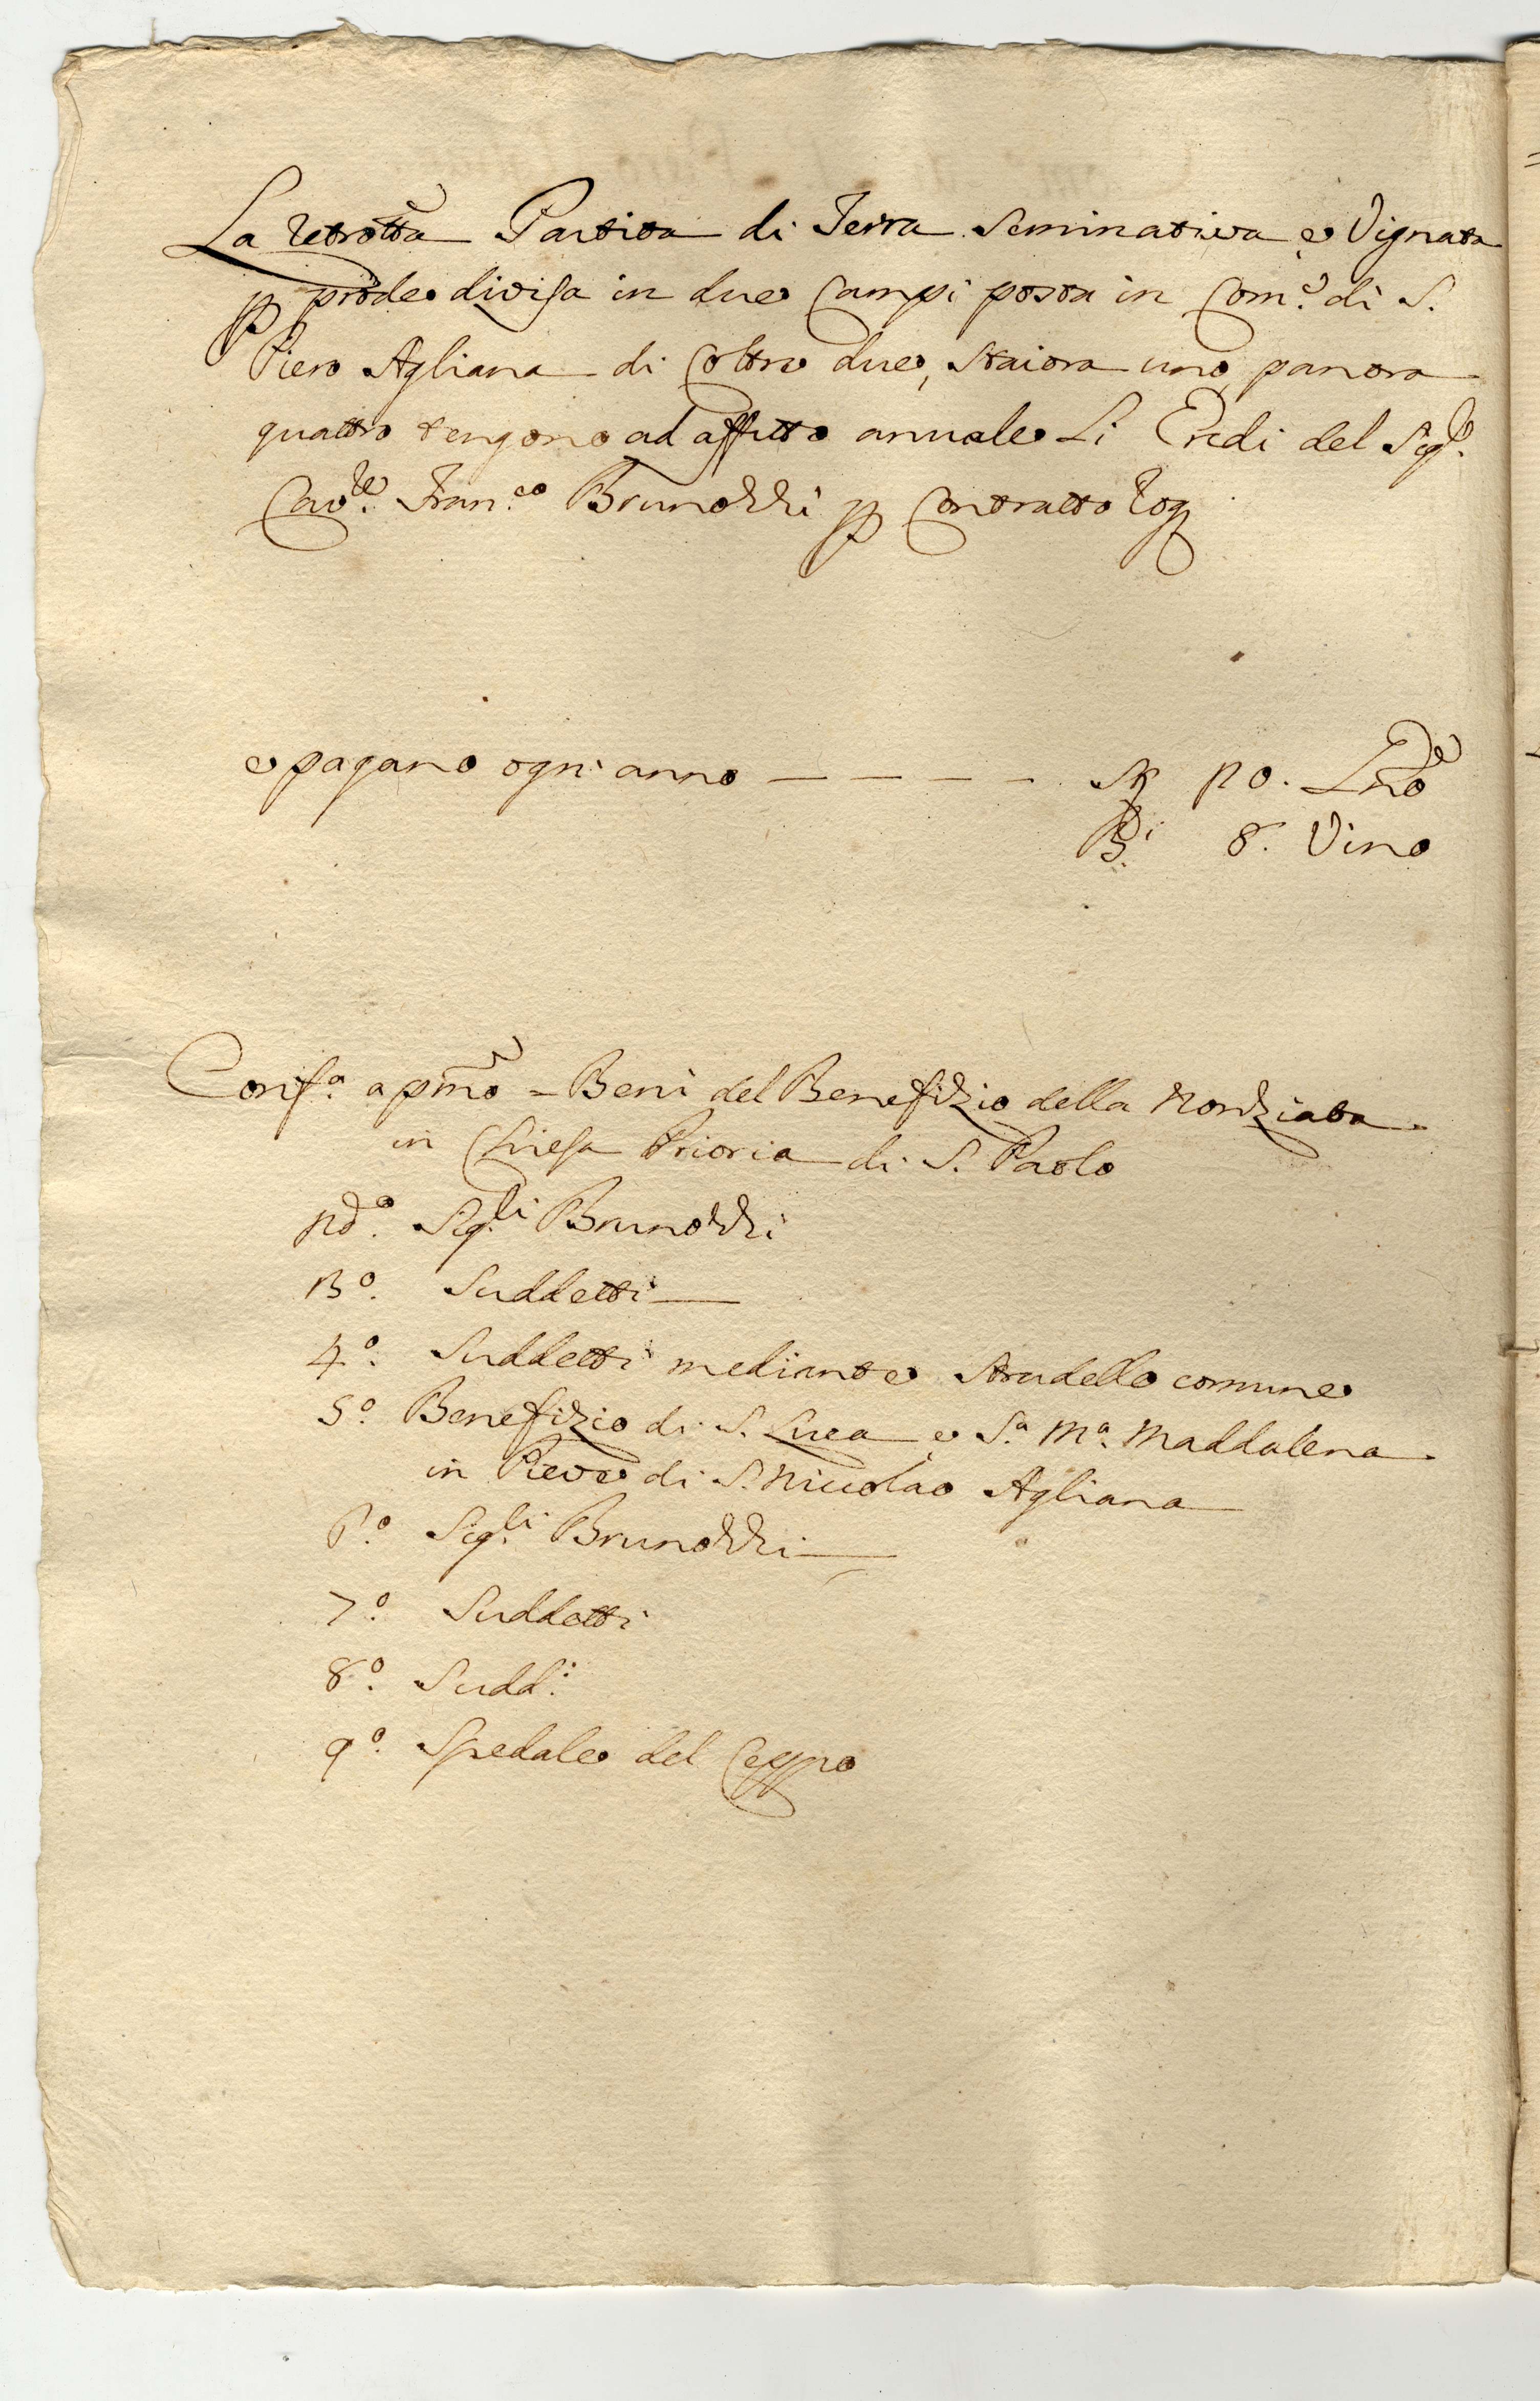 La retrotta Partita di Terra Seminativa e Vignata
p prode divisa in due Campi posta in Com.e di S.
Piero Agliana di Coltre due, Staiora uno, panora
quattro tengono ad affitto annuale Li Eredi del Sig.r
Cav.re Fran.co Brunozzi p Contratto Rog
e pagano ogni anno — — — — St 20. Gno
B.i 8. Vino
Conf.a a pmo = Beni del Benefizio della Nonziata
in Chiesa Prioria di S. Paolo
2do. Sig.ri Brunozzi
3o. Suddetti —
4o. Suddetti mediante Stradello comune
5o. Benefizio di S. Luca e S.a M.a Maddalena
in Pieve di S. Niccolao Agliana
6o. Sig.ri Brunozzi —
7o. Suddetti
8o. Sudd.i
9o. Spedale del Ceppo